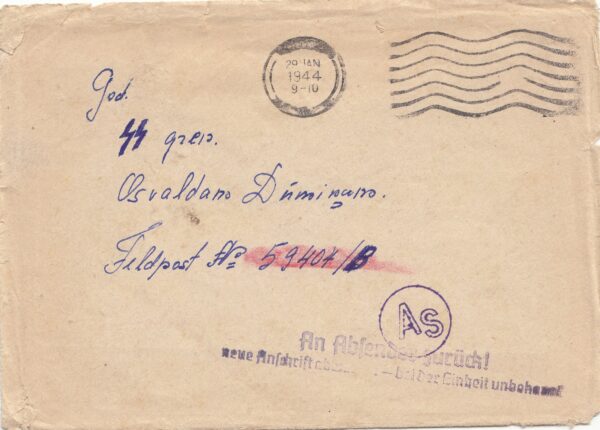 29 JAN
1944
9-10
God.
SS gren.
Osvaldam Dúmiņam.
Feldpost № 59404/B
AS
An Absender zurück!
neue Anschrift – bei der Einheit unbekannt